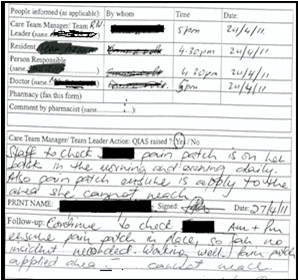 People informed (as applicable): By whom Time Date:
Care Team Manager/ Team RN
Leader (name 5pm 21/4/11
Resident 4.30pm 21/4/11
Person Responsible
(name 4.30pm 21/4/11
Doctor (name 6pm 21/4/11
Pharmacy (fax this form)
Comment by pharmacist (name
Care Team Manager/ Team Leader Action: QIAS raised ? Yes / No
Staff to check pain patch is on her
patch in the morning and evening daily.
Also pain patch ensure is apply to the
area she cannot reach
PRINT NAME: Signed: Date: 27/4/11
Follow-up: Continue to check Am + pm
ensure pain patch in place, so far no
incident Working well. Pain patch
applied area cannot reach